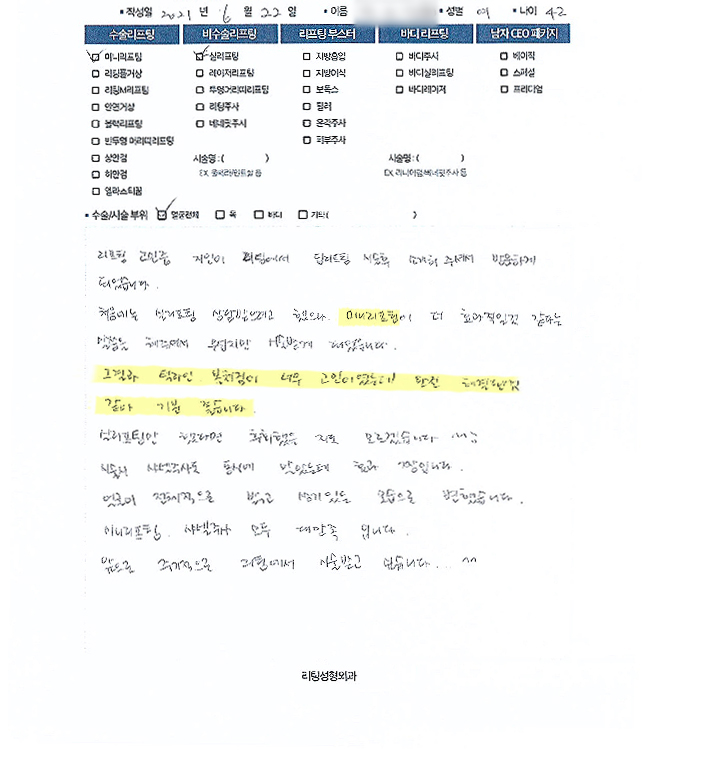 • 작성일 2021 년 6 월 22 일 • 이름 • 성별 여 • 나이 42
수술리프팅 비수술리프팅 리프팅 부스터 바디 리프팅 남자 CEO 패키지
미니리프팅 실리프팅 지방흡입 바디주사 베이직
리팅풀거상 레이저리프팅 지방이식 바디실리프팅 스페셜
리팅M리프팅 투명머리띠리프팅 보톡스 바디레이저 프리미엄
안면거상 리팅주사 필러
볼륨리프팅 베네핏주사 윤곽주사
반투명 머리띠리프팅 피부주사
상안검 시술명 : ( ) 시술명 : ( )
하안검 EX. 울쎄라/인트라셀 등
엘라스티꿈
• 수술/시술 부위 얼굴전체 목 바디 기타( )
리프팅 고민중 지인이 리팅에서 실리프팅 시술후 소개해 주셔서 방문하게
되었습니다.
처음에는 실리프팅 상담받으려고 했으나. 미니리프팅이 더 효과적일것 같다는
말씀을 해주셔서 시술받게 되었습니다.
그결과 턱라인. 볼처짐이 너무 고민이였는데 완전 해결된것
같아 기분 좋습니다.
실리프팅만 했다면 후회했을 지도 모르겠습니다 ^^;;
시술시 샤넬주사도 동시에 맞았는데 효과 짱입니다.
얼굴이 전체적으로 밝고 생기있는 모습으로 변했습니다.
미니리프팅. 샤넬주사 모두 대만족 입니다.
앞으로 주기적으로 리팅에서 시술받고 싶습니다... ^^
리팅성형외과